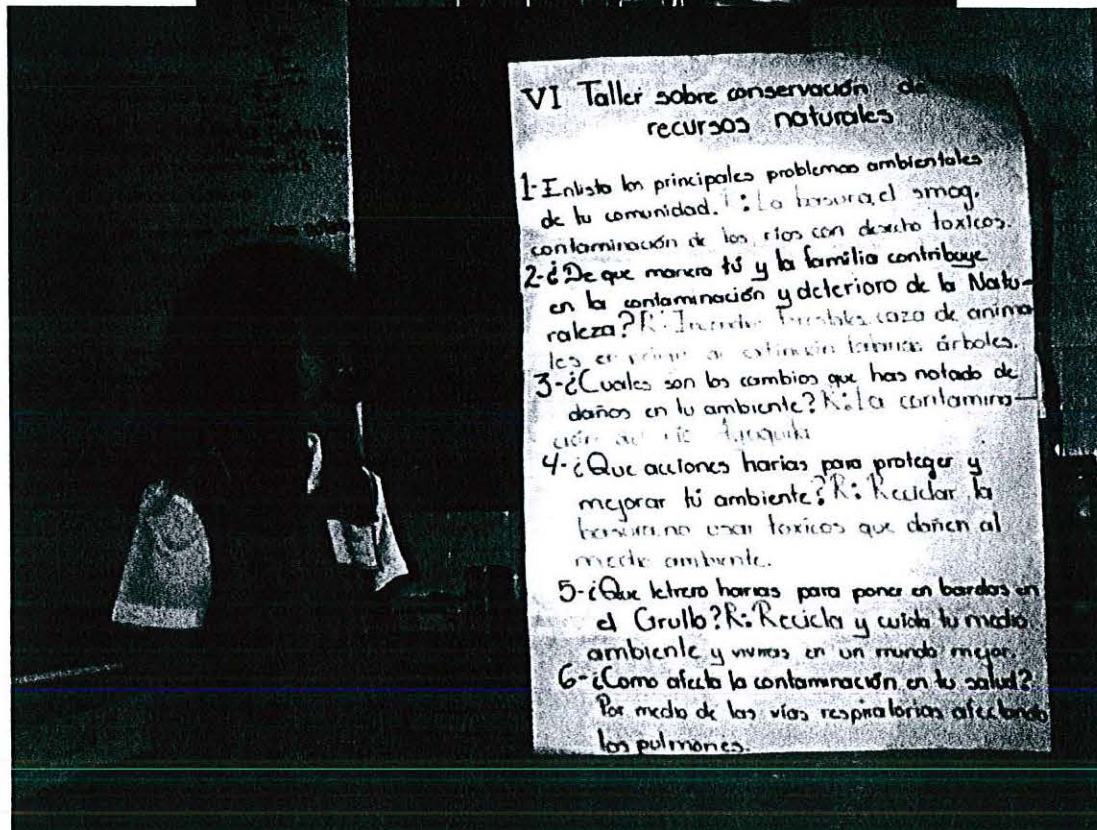 VI Taller sobre conservación de
recursos naturales
1-Enlista los principales problemas ambientales
de tu comunidad. R: La basura, el smog,
contaminación de los ríos con desecho toxicos.
2-¿De que manera tú y la familia contribuye
en la contaminación y deterioro de la Natu-
raleza? R: forestales caza de anima
les en de extinción árboles.
3-¿Cuales son los cambios que has notado de
daños en tu ambiente? R: La contamina-
ción del río Ayuquila
4-¿Que acciones harias para proteger y
mejorar tú ambiente? R: Reciclar la
basura, no usar toxicos que dañen al
medio ambiente.
5-¿Que letrero harias para poner en bardas en
el Grullo? R: Recicla y cuida tu medio
ambiente y vivirás en un mundo mejor.
6-¿Como afecta la contaminación en tu salud?
Por medio de las vías respiratorias afectando
los pulmones.